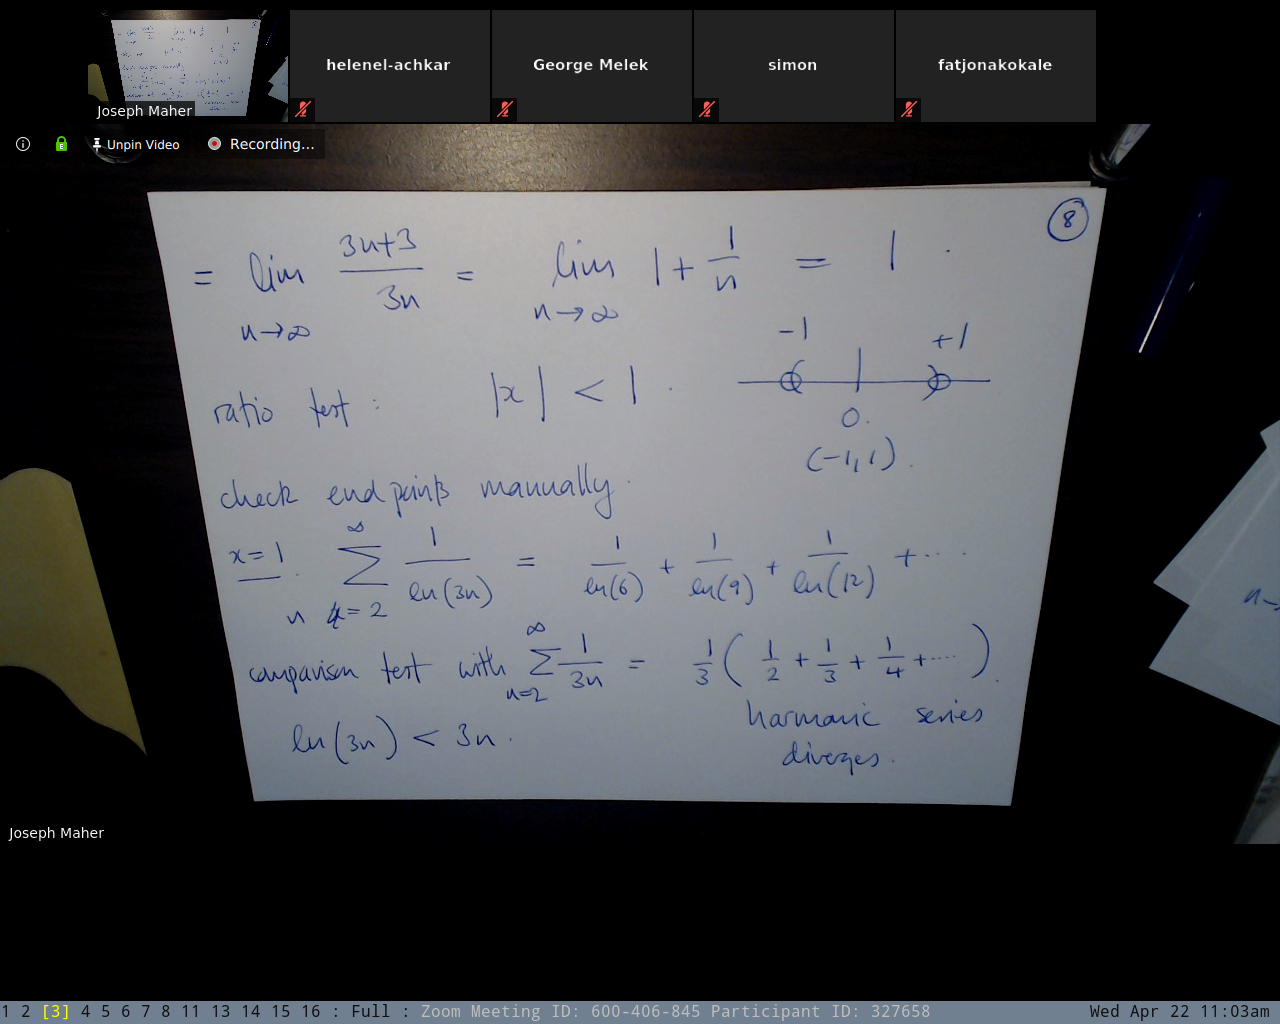 helenel-achkar
George Melek
simon
fatjonakokale
Joseph Maher
Unpin Video
Recording...
8
= lim n→∞ 3n+3 / 3n = lim n→∞ 1 + 1/n = 1.
-1 +1
ratio test: |x| < 1.
0.
(-1,1).
check endpoints manually.
x=1. ∑ n=2 ∞ 1/ln(3n) = 1/ln(6) + 1/ln(9) + 1/ln(12) + ....
comparison test with ∑ n=2 ∞ 1/3n = 1/3 ( 1/2 + 1/3 + 1/4 + .... ).
ln(3n) < 3n.
harmonic series
diverges.
n→
Joseph Maher
1 2 [3] 4 5 6 7 8 11 13 14 15 16 : Full : Zoom Meeting ID: 600-406-845 Participant ID: 327658 Wed Apr 22 11:03am